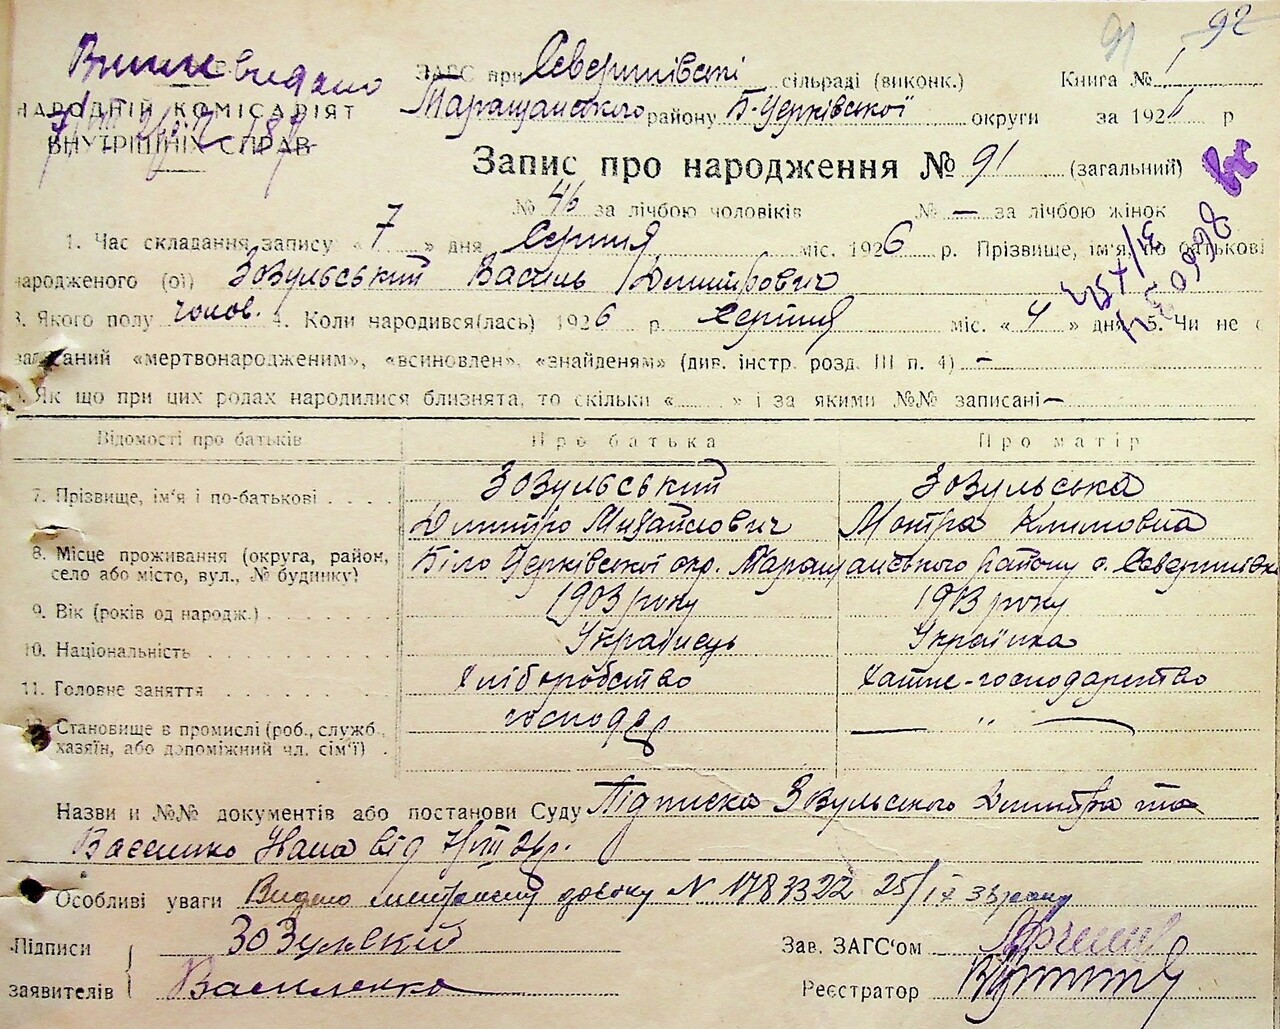 91 92
Випис видано
ЗАГС при Северинівскі сільраді (виконк.) Книга № 1
НАРОДНІЙ КОМІСАРІЯТ
ВНУТРІШНІХ СПРАВ
Таращанського району Б-Церківської округи за 1926 р
Запис про народження № 91 (загальний)
№ 46 за лічбою чоловіків № — за лічбою жінок
1. Час складання запису « 7 » дня Серпня міс. 1926 р. Прізвище, ім'я, по батькові
народженого (ої) Зозульський Василь Дмитрович
3. Якого полу чолов. 4. Коли народився(лась) 1926 р Серпня міс. « 4 » дня 5. Чи не є
записаний «мертвонародженим», «всиновлен», «знайденям» (див. інстр. розд. III п. 4) —
Як що при цих родах народилися близнята, то скільки « » і за якими №№ записані —
Відомості про батьків Про батька Про матір
7. Прізвище, ім'я і по-батькові Зозульський Зозульська
Дмитро Михайлович Мотря Климовна
8. Місце проживання (округа, район, село або місто, вул., № будинку) Біло Церківської окр. Таращанського району с. Северинівка
9. Вік (років од народж.) 1903 року 1903 року
10. Національність Українець Українка
11. Головне заняття Хліборобство Хатне-господарство
12. Становище в промислі (роб., служб., господар — " —
хазяїн, або допоміжний чл. сім'ї)
Назви и №№ документів або постанови Суду Підписка Зозульского Дмитра та
Василенко від 7/VIII
Особливі уваги Видано метричну довідку N 1783322 25/IX
Підписи Зозульский Зав. ЗАГС'ом
заявителів Василенко Реєстратор